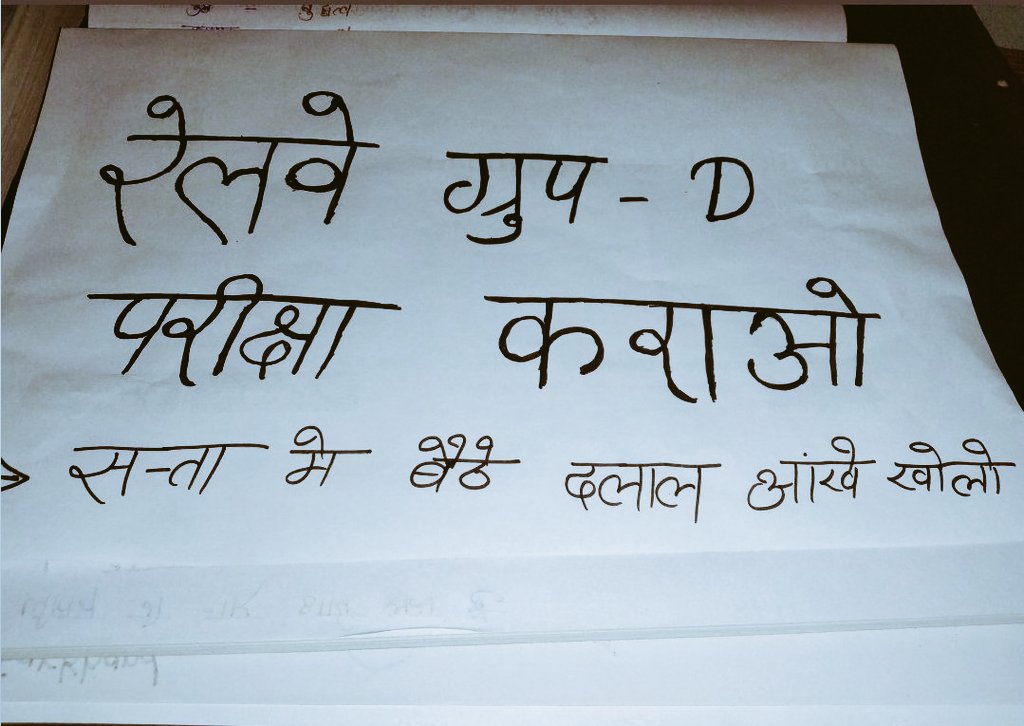 रेलवे ग्रुप - D
परीक्षा कराओ
→ सत्ता मे बैठे दलाल आंखे खोलो